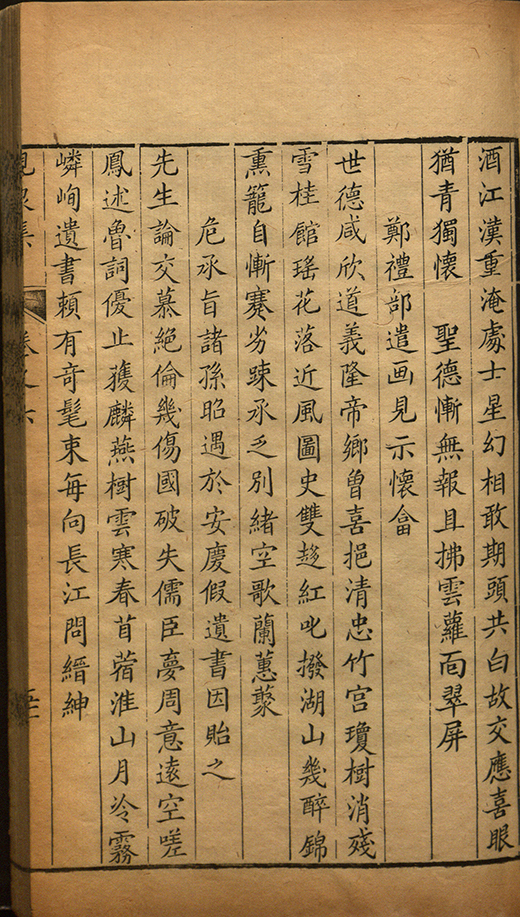 酒江漢重淹處士星幻相敢期頭共白故交應喜眼
猶青獨懷　聖德慚無報且拂雲蘿面翠屏
鄭禮部遣画見示懷畣
世德咸欣道義隆帝鄉曾喜挹清忠竹宫瓊樹消殘
雪桂館瑤花落近風圖史雙趍紅叱撥湖山幾醉錦
熏籠自慚蹇劣踈承乏別緒空歌蘭蕙藂
危承旨諸孫昭遇於安慶假遺書因貽之
先生論交慕絕倫幾傷國破失儒臣夢周意遠空嗟
鳳述魯詞優止獲麟燕樹雲寒春苜蓿淮山月冷霧
嶙峋遺書頼有奇髦朿每向長江問縉紳
集